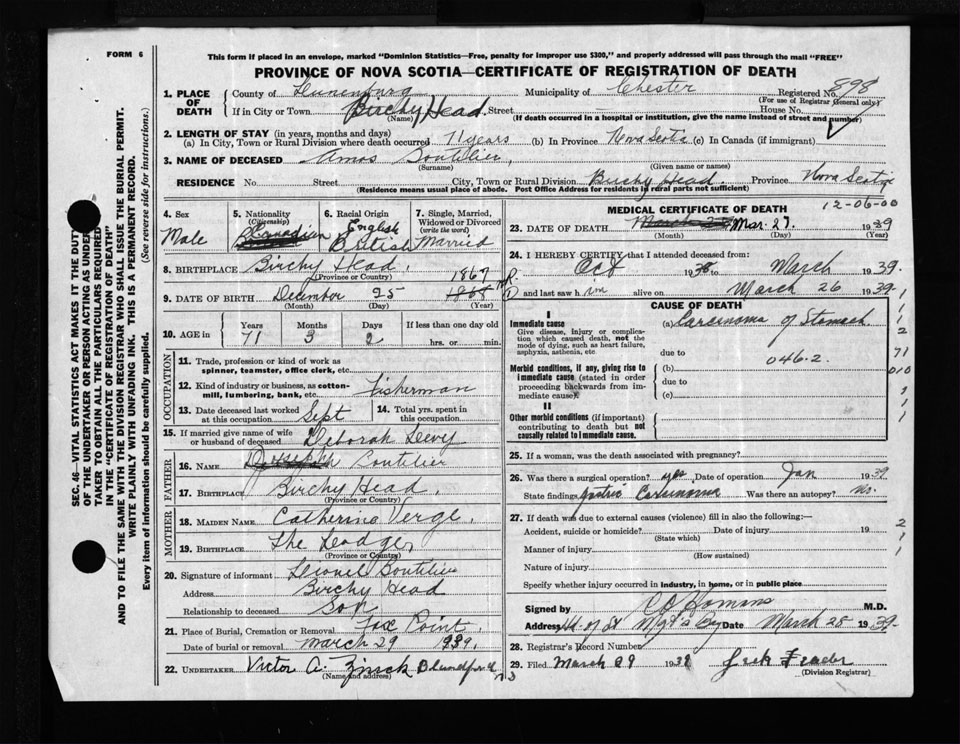 FORM 6
This form if placed in an envelope, marked "Dominion Statistics—Free, penalty for improper use $300," and properly addressed will pass through the mail "FREE"
PROVINCE OF NOVA SCOTIA—CERTIFICATE OF REGISTRATION OF DEATH
1. PLACE OF DEATH County of Lunenburg Municipality of Chester Registered No. 898
(For use of Registrar General only)
If in City or Town Birchy Head Street House No.
(Name) (If death occurred in a hospital or institution, give the name instead of street and number)
2. LENGTH OF STAY (in years, months and days)
(a) In City, Town or Rural Division where death occurred 71 years (b) In Province Nova Scotia (c) In Canada (if immigrant)
3. NAME OF DECEASED Amos Boutilier,
(Surname) (Given name or names)
RESIDENCE No. Street City, Town or Rural Division Birchy Head. Province Nova Scotia
(Residence means usual place of abode. Post Office Address for residents in rural parts not sufficient)
4. Sex Male
5. Nationality (Citizenship) Canadian
6. Racial Origin English British
7. Single, Married, Widowed or Divorced (write the word) Married
8. BIRTHPLACE Birchy Head,
(Province or Country)
1867
9. DATE OF BIRTH December 25
(Month) (Day) (Year)
10. AGE in Years 71 Months 3 Days 2 If less than one day old hrs. or min.
OCCUPATION
11. Trade, profession or kind of work as spinner, teamster, office clerk, etc.
12. Kind of industry or business, as cotton-mill, lumbering, bank, etc. Fisherman
13. Date deceased last worked at this occupation Sept
14. Total yrs. spent in this occupation
15. If married give name of wife or husband of deceased Deborah Levy
FATHER
16. Name Joseph Boutilier
17. Birthplace Birchy Head,
(Province or Country)
MOTHER
18. Maiden Name Catherine Verge,
19. Birthplace The Lodge,
(Province or Country)
20. Signature of informant Lionel Boutilier
Address Birchy Head
Relationship to deceased Son
21. Place of Burial, Cremation or Removal Fox Point,
Date of burial or removal March 29 1939.
22. UNDERTAKER Victor A. Zinck Blandford
(Name and address)
N S
MEDICAL CERTIFICATE OF DEATH 12-06-00
23. DATE OF DEATH Mar. 27. 1939
(Month) (Day) (Year)
24. I HEREBY CERTIFY that I attended deceased from:
Oct 1938 to March 1939.
and last saw him alive on March 26 1939.
CAUSE OF DEATH
I
Immediate cause
Give disease, injury or complication which caused death, not the mode of dying, such as heart failure, asphyxia, asthenia, etc.
(a) Carcinoma of Stomach
due to
Morbid conditions, if any, giving rise to immediate cause (stated in order proceeding backwards from immediate cause)
(b) 046.2.
due to
(c)
II
Other morbid conditions (if important) contributing to death but not causally related to immediate cause.
25. If a woman, was the death associated with pregnancy?
26. Was there a surgical operation? yes Date of operation Jan 1939
State findings Gastric Carcinoma Was there an autopsy? no.
27. If death was due to external causes (violence) fill in also the following:—
Accident, suicide or homicide? Date of injury 19
(State which)
Manner of injury
(How sustained)
Nature of injury
Specify whether injury occurred in industry, in home, or in public place
Signed by M.D.
Address Hd. of St Mgt's Bay Date March 28 1939.
28. Registrar's Record Number
29. Filed March 29 1939
(Division Registrar)
SEC. 46—VITAL STATISTICS ACT MAKES IT THE DUTY
OF THE UNDERTAKER OR PERSON ACTING AS UNDER-
TAKER TO OBTAIN ALL THE PARTICULARS REQUIRED
IN THE "CERTIFICATE OF REGISTRATION OF DEATH"
AND TO FILE THE SAME WITH THE DIVISION REGISTRAR WHO SHALL ISSUE THE BURIAL PERMIT.
WRITE PLAINLY WITH UNFADING INK. THIS IS A PERMANENT RECORD.
Every item of information should be carefully supplied. (See reverse side for instructions.)